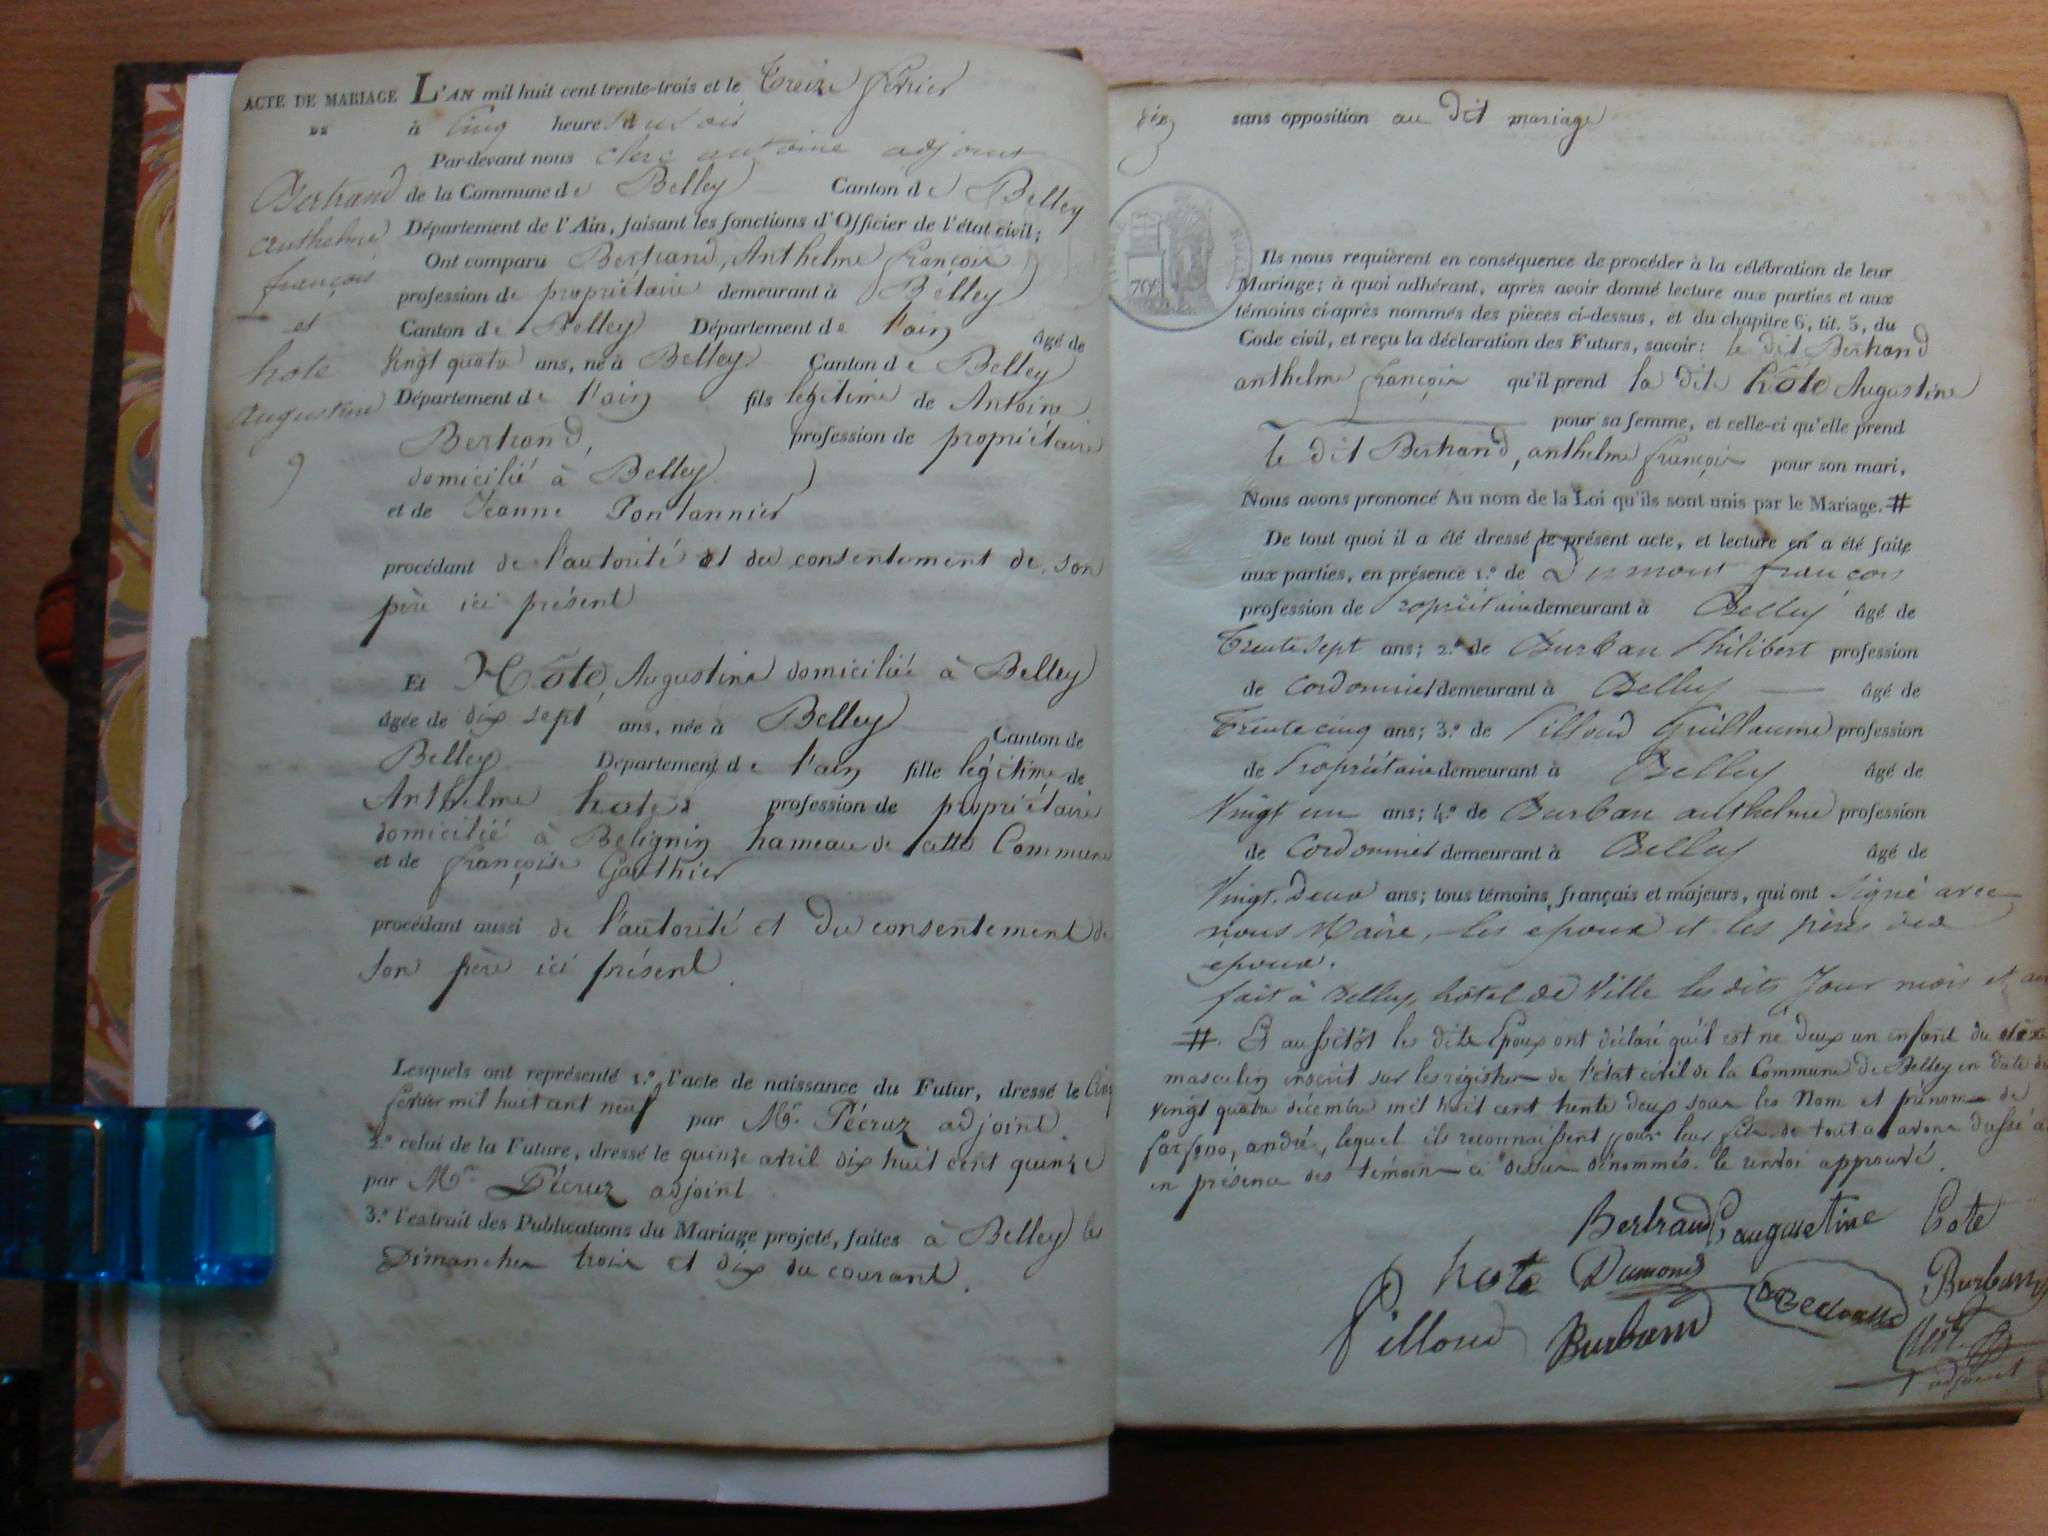 ACTE DE MARIAGE
DE
Bertrand
anthelme
françois
et
hote
augustine
9
L'AN mil huit cent trente-trois et le Treize février
à Cinq heures du soir
Par-devant nous Clerc antoine adjoint
de la Commune de Belley Canton de Belley
Département de l'Ain, faisant les fonctions d'Officier de l'état civil;
Ont comparu Bertrand, Anthelme françois
profession de propriétaire demeurant à Belley
Canton de Belley Département de l'ain âgé de
Vingt quatre ans, né à Belley Canton de Belley
Département de l'ain fils légitime de Antoine
Bertrand, profession de propriétaire
domicilié à Belley
et de Jeanne Pontannier
procédant de l'autorité et du consentement de son
père ici présent
Et Hôte, Augustine domiciliée à Belley
âgée de dix sept ans, née à Belley Canton de
Belley Département de l'ain fille légitime de
Anthelme hote profession de propriétaire
domicilié à Belignin hameau de cette Commune
et de françoise Gauthier
procédant aussi de l'autorité et du consentement de
son père ici présent.
Lesquels ont représenté 1.º l'acte de naissance du Futur, dressé le Cinq
février mil huit cent neuf par Mr. Pécruz adjoint.
2.º celui de la Future, dressé le quinze avril dix huit cent quinze
par Mr. Pécruz adjoint
3.º l'extrait des Publications du Mariage projeté, faites à Belley les
Dimanches trois et dix du courant.
dix
sans opposition au dit mariage
Ils nous requièrent en conséquence de procéder à la célébration de leur
Mariage; à quoi adhérant, après avoir donné lecture aux parties et aux
témoins ci-après nommés des pièces ci-dessus, et du chapitre 6, tit. 5, du
Code civil, et reçu la déclaration des Futurs, savoir: le dit Bertrand
anthelme françois qu'il prend la dite hôte Augustine
pour sa femme, et celle-ci qu'elle prend
le dit Bertrand, anthelme françois pour son mari,
Nous avons prononcé Au nom de la Loi qu'ils sont unis par le Mariage. #
De tout quoi il a été dressé le présent acte, et lecture en a été faite
aux parties, en présence 1.º de Dumont françois
profession de Propriétaire demeurant à Belley âgé de
Trente sept ans; 2.º de Burban Philibert profession
de Cordonnier demeurant à Belley âgé de
Trente cinq ans; 3.º de Pilloud Guillaume profession
de Propriétaire demeurant à Belley âgé de
Vingt un ans; 4.º de Burban anthelme profession
de Cordonnier demeurant à Belley âgé de
Vingt Deux ans; tous témoins français et majeurs, qui ont Signé avec
nous Maire, les epoux et les pères des
epoux.
fait à Belley, hôtel de Ville les dits Jour mois et an
# Et aussitôt les dits Epoux ont déclaré qu'il est né deux un enfant du sexe
masculin inscrit sur les régistres de l'état civil de la Commune de Belley en date du
vingt quatre décembre mil huit cent trente deux sous les Nom et prénoms de
andré, lequel ils reconnaissent pour leur fils de tout avons dressé
en présence des témoins ci dessus dénommés. le renvoi approuvé.
Bertrand augustine hote
hote Dumond Burban
Pilloud Burban
adjoint